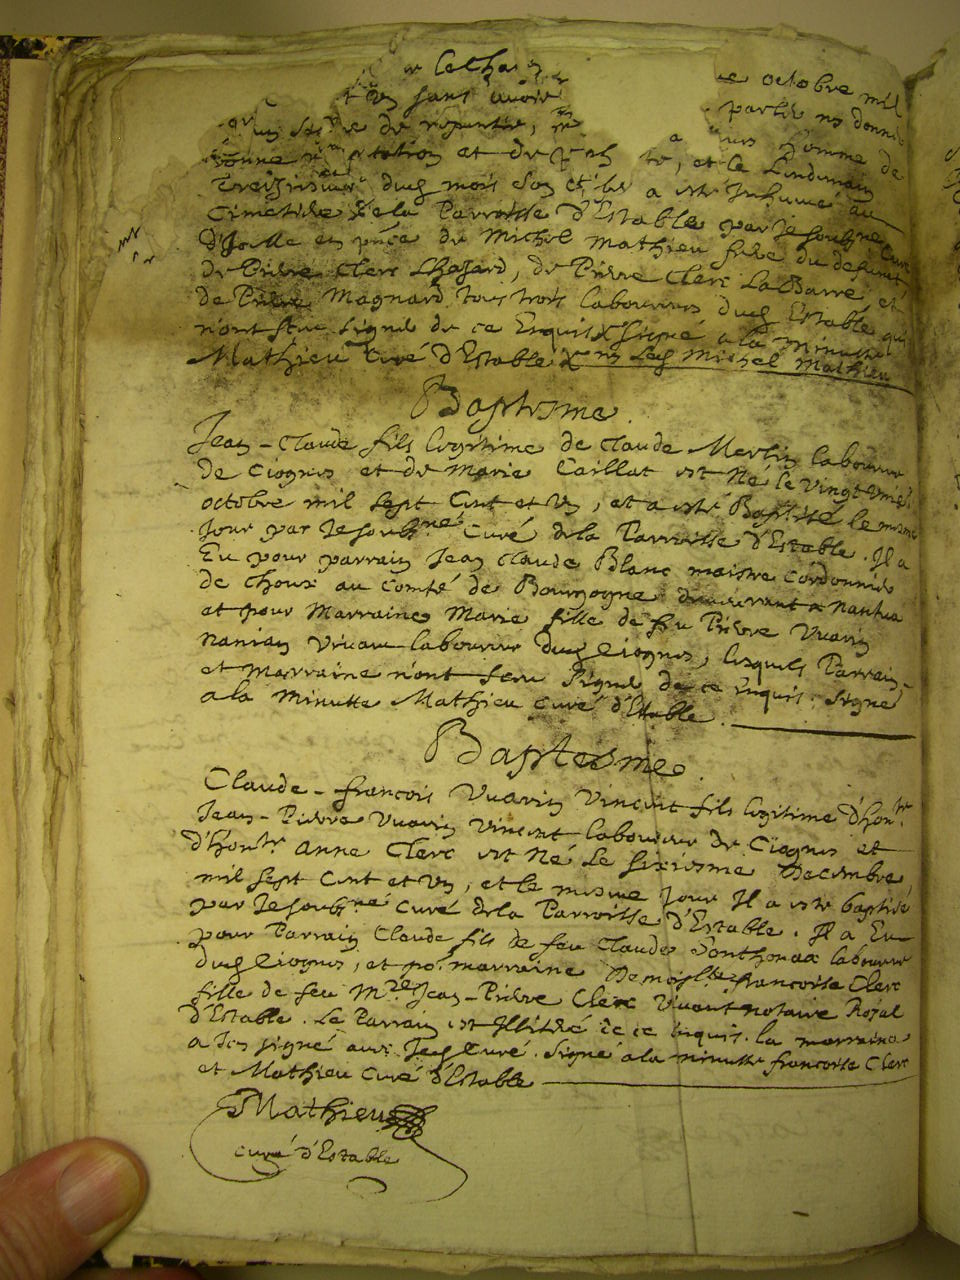 octobre mil
sans avoir
de repentir, partie
et de homme de
et le Lendemain
duq mois a esté Inhumé au
Cimetière de la Parroisse d'Estable par Je soubsne Curé
en de Michel Mathieu frère du defunt
de Pierre Clerc Lhazard, de Pierre Clerc La Barre et
de Pierre Magnard tous trois laboureurs dud Estable qui
n'ont sceu signé de ce Enquis signé a la minutte
Mathieu Curé d'Estable Michel Mathieu
Baptesme
Jean-Claude fils legitime de Claude Merlin laboureur
de Ciognes et de Marie Caillat est Né le vingt
octobre mil sept Cent et un, et a esté Baptisé le mesme
Jour par Je soubsne Curé de la Parroisse d'Estable. Il a
Eu pour parrain Jean Claude Blanc maistre Cordonnier
de Choux au Comté de Bourgogne demeurant a Nantua
et pour Marraine Marie fille de feu Pierre Vuarin
vivant laboureur dud Ciognes, lesquels Parrain
et Marraine n'ont sceu signé de ce enquis. signé
a la minutte Mathieu curé d'Estable.
Baptesme
Claude-francois Vuarin Vincent fils legitime d'honte
Jean-Pierre Vuarin Vincent laboureur de Ciognes et
d'honte Anne Clerc est Né Le sixiesme Decembre
mil sept Cent et un, et le mesme Jour Il a esté baptisé
par Je soubsne curé de la Parroisse d'Estable. Il a Eu
pour Parrain Claude fils de feu Claude Sonthonax laboureur
dud Ciognes, et po. marraine Demoislle francoise Clerc
fille de feu Mre Jean-Pierre Clerc Vivant notaire Rojal
d'Estable. Le Parrain est Illitéré de ce enquis. la marraine
a signé avec Jed Curé. signé a la minutte francoise Clerc
et Mathieu Curé d'Estable
Mathieu
curé d'Estable